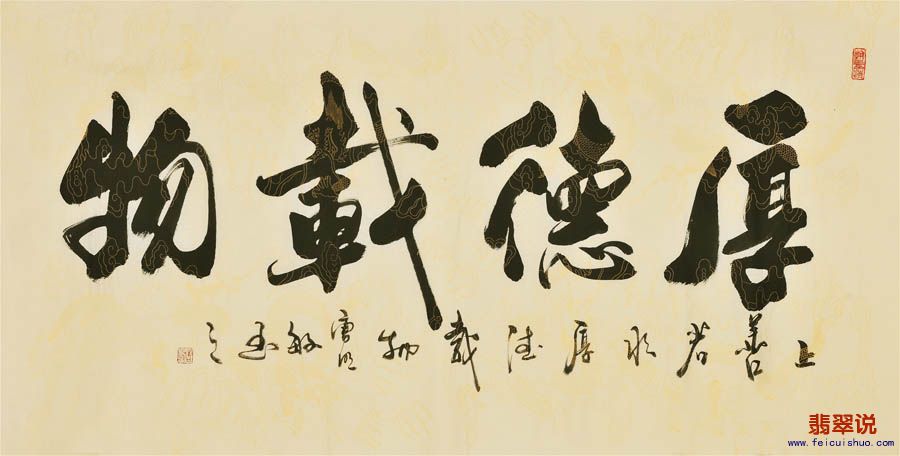 厚德载物
上善若水厚德载物
翡翠说
www.feicuishuo.com